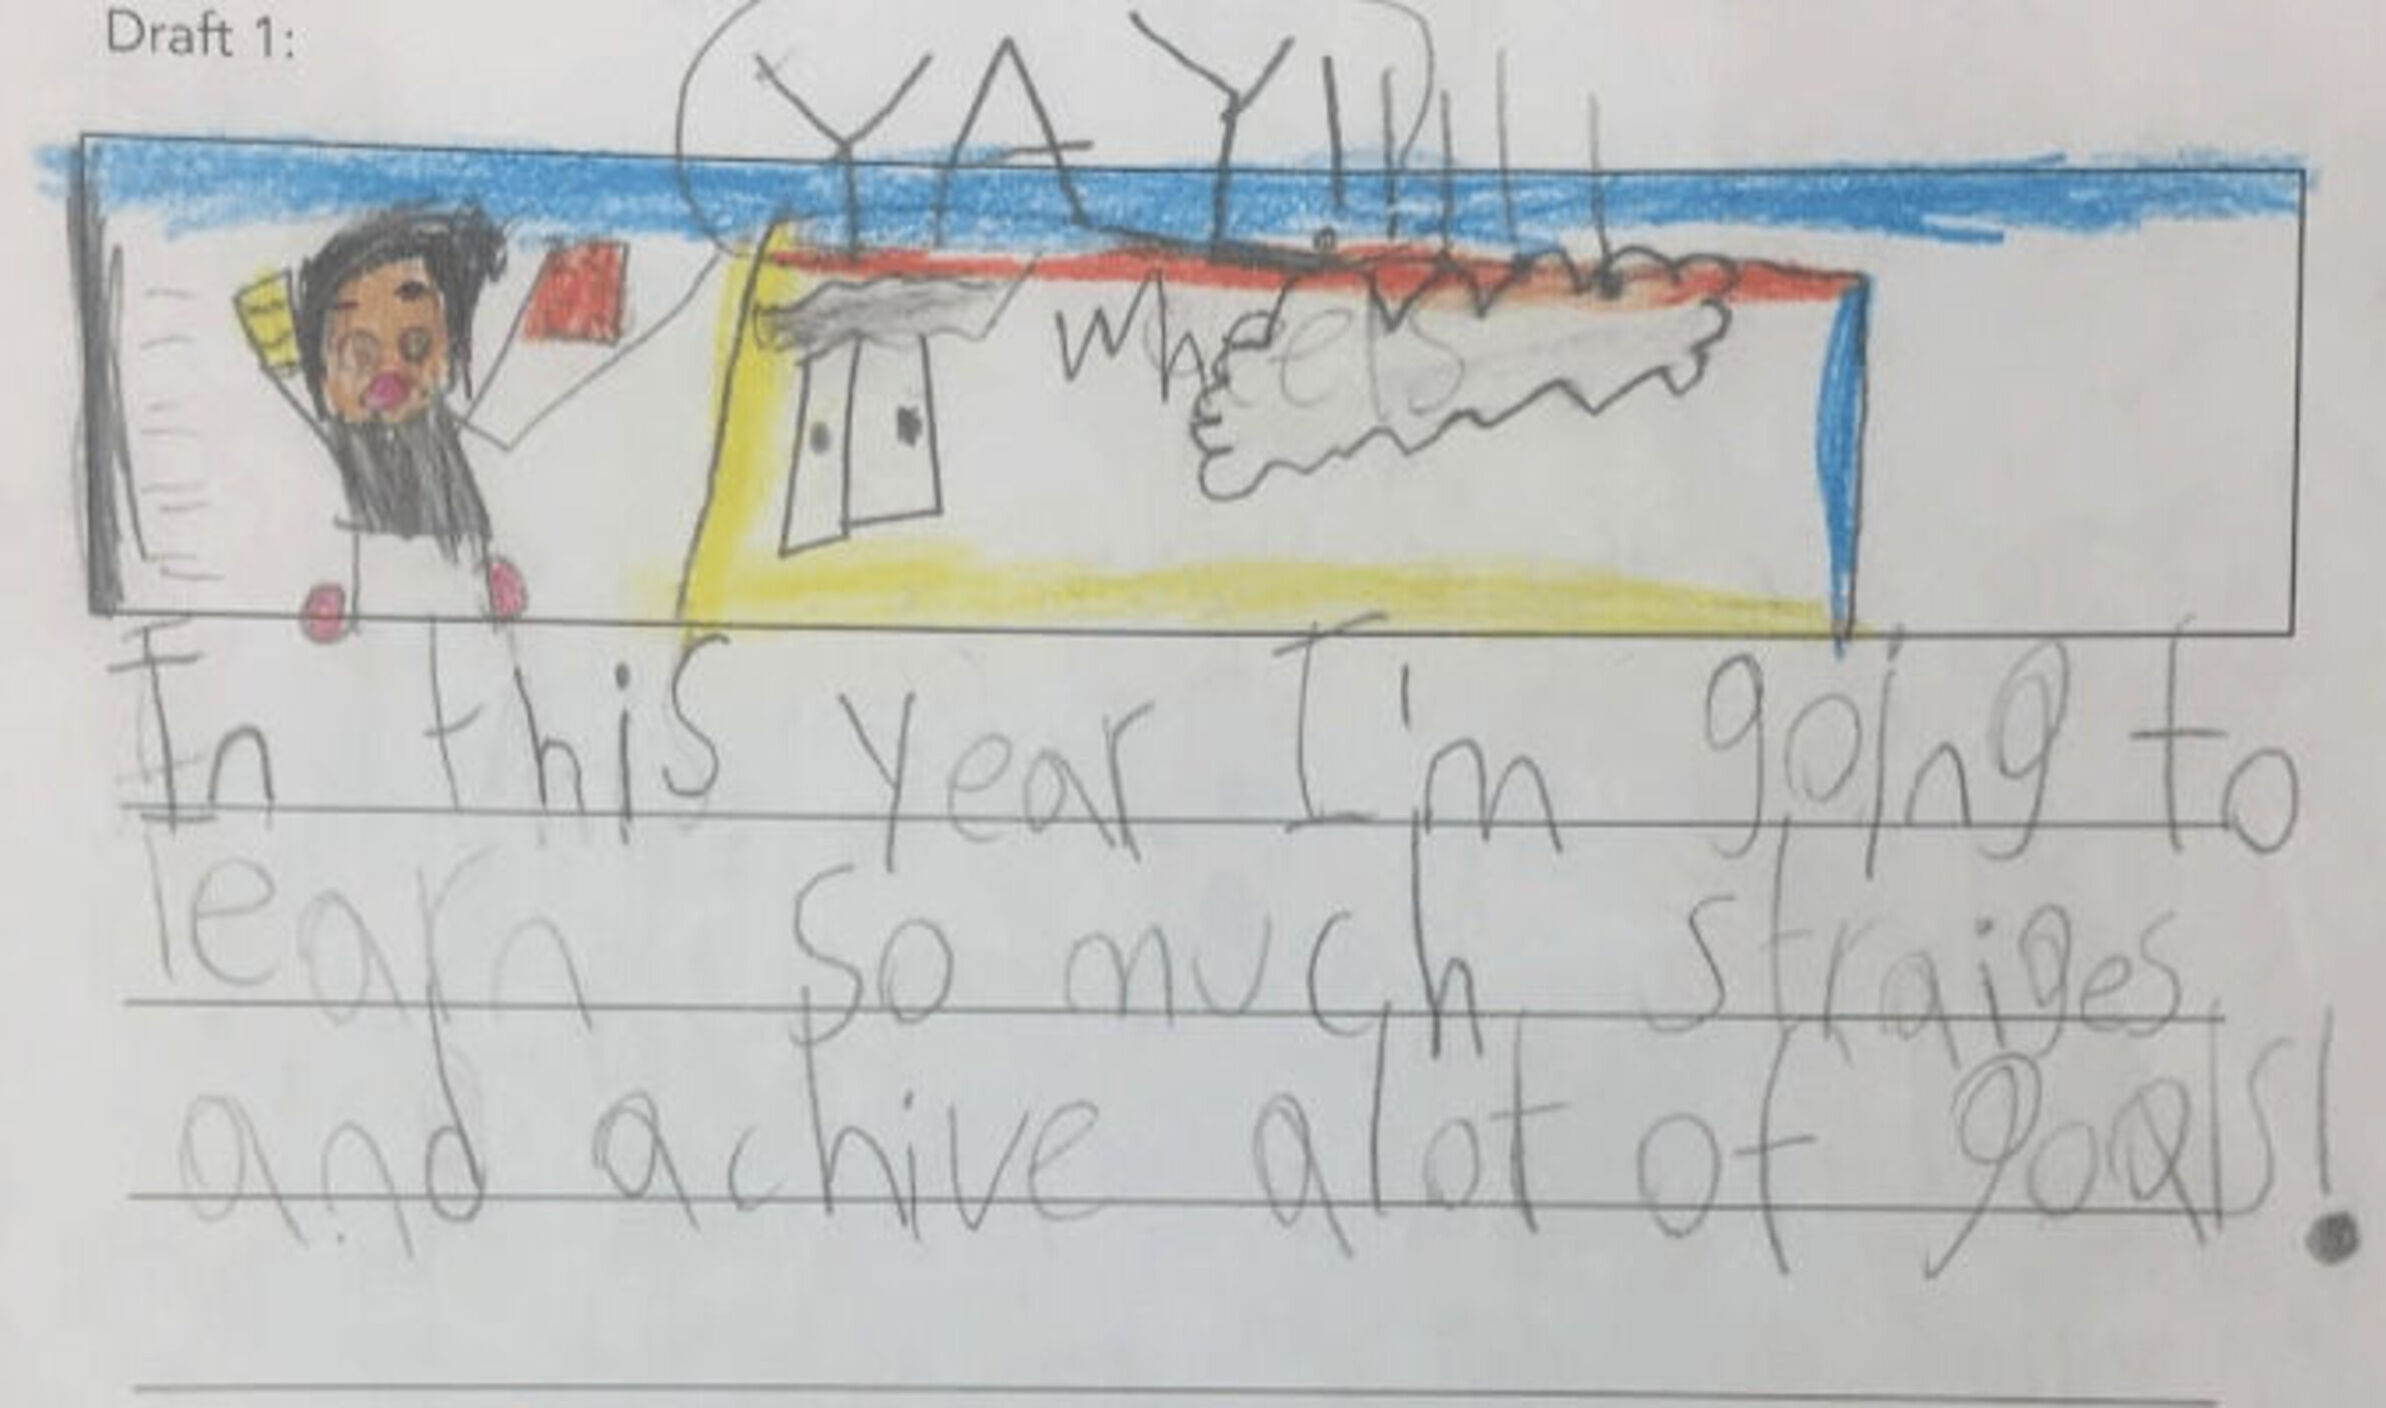 Draft 1:
YAY!!!!!
Wheels
In this year I'm going to
learn so much straiges
and achive alot of goals!